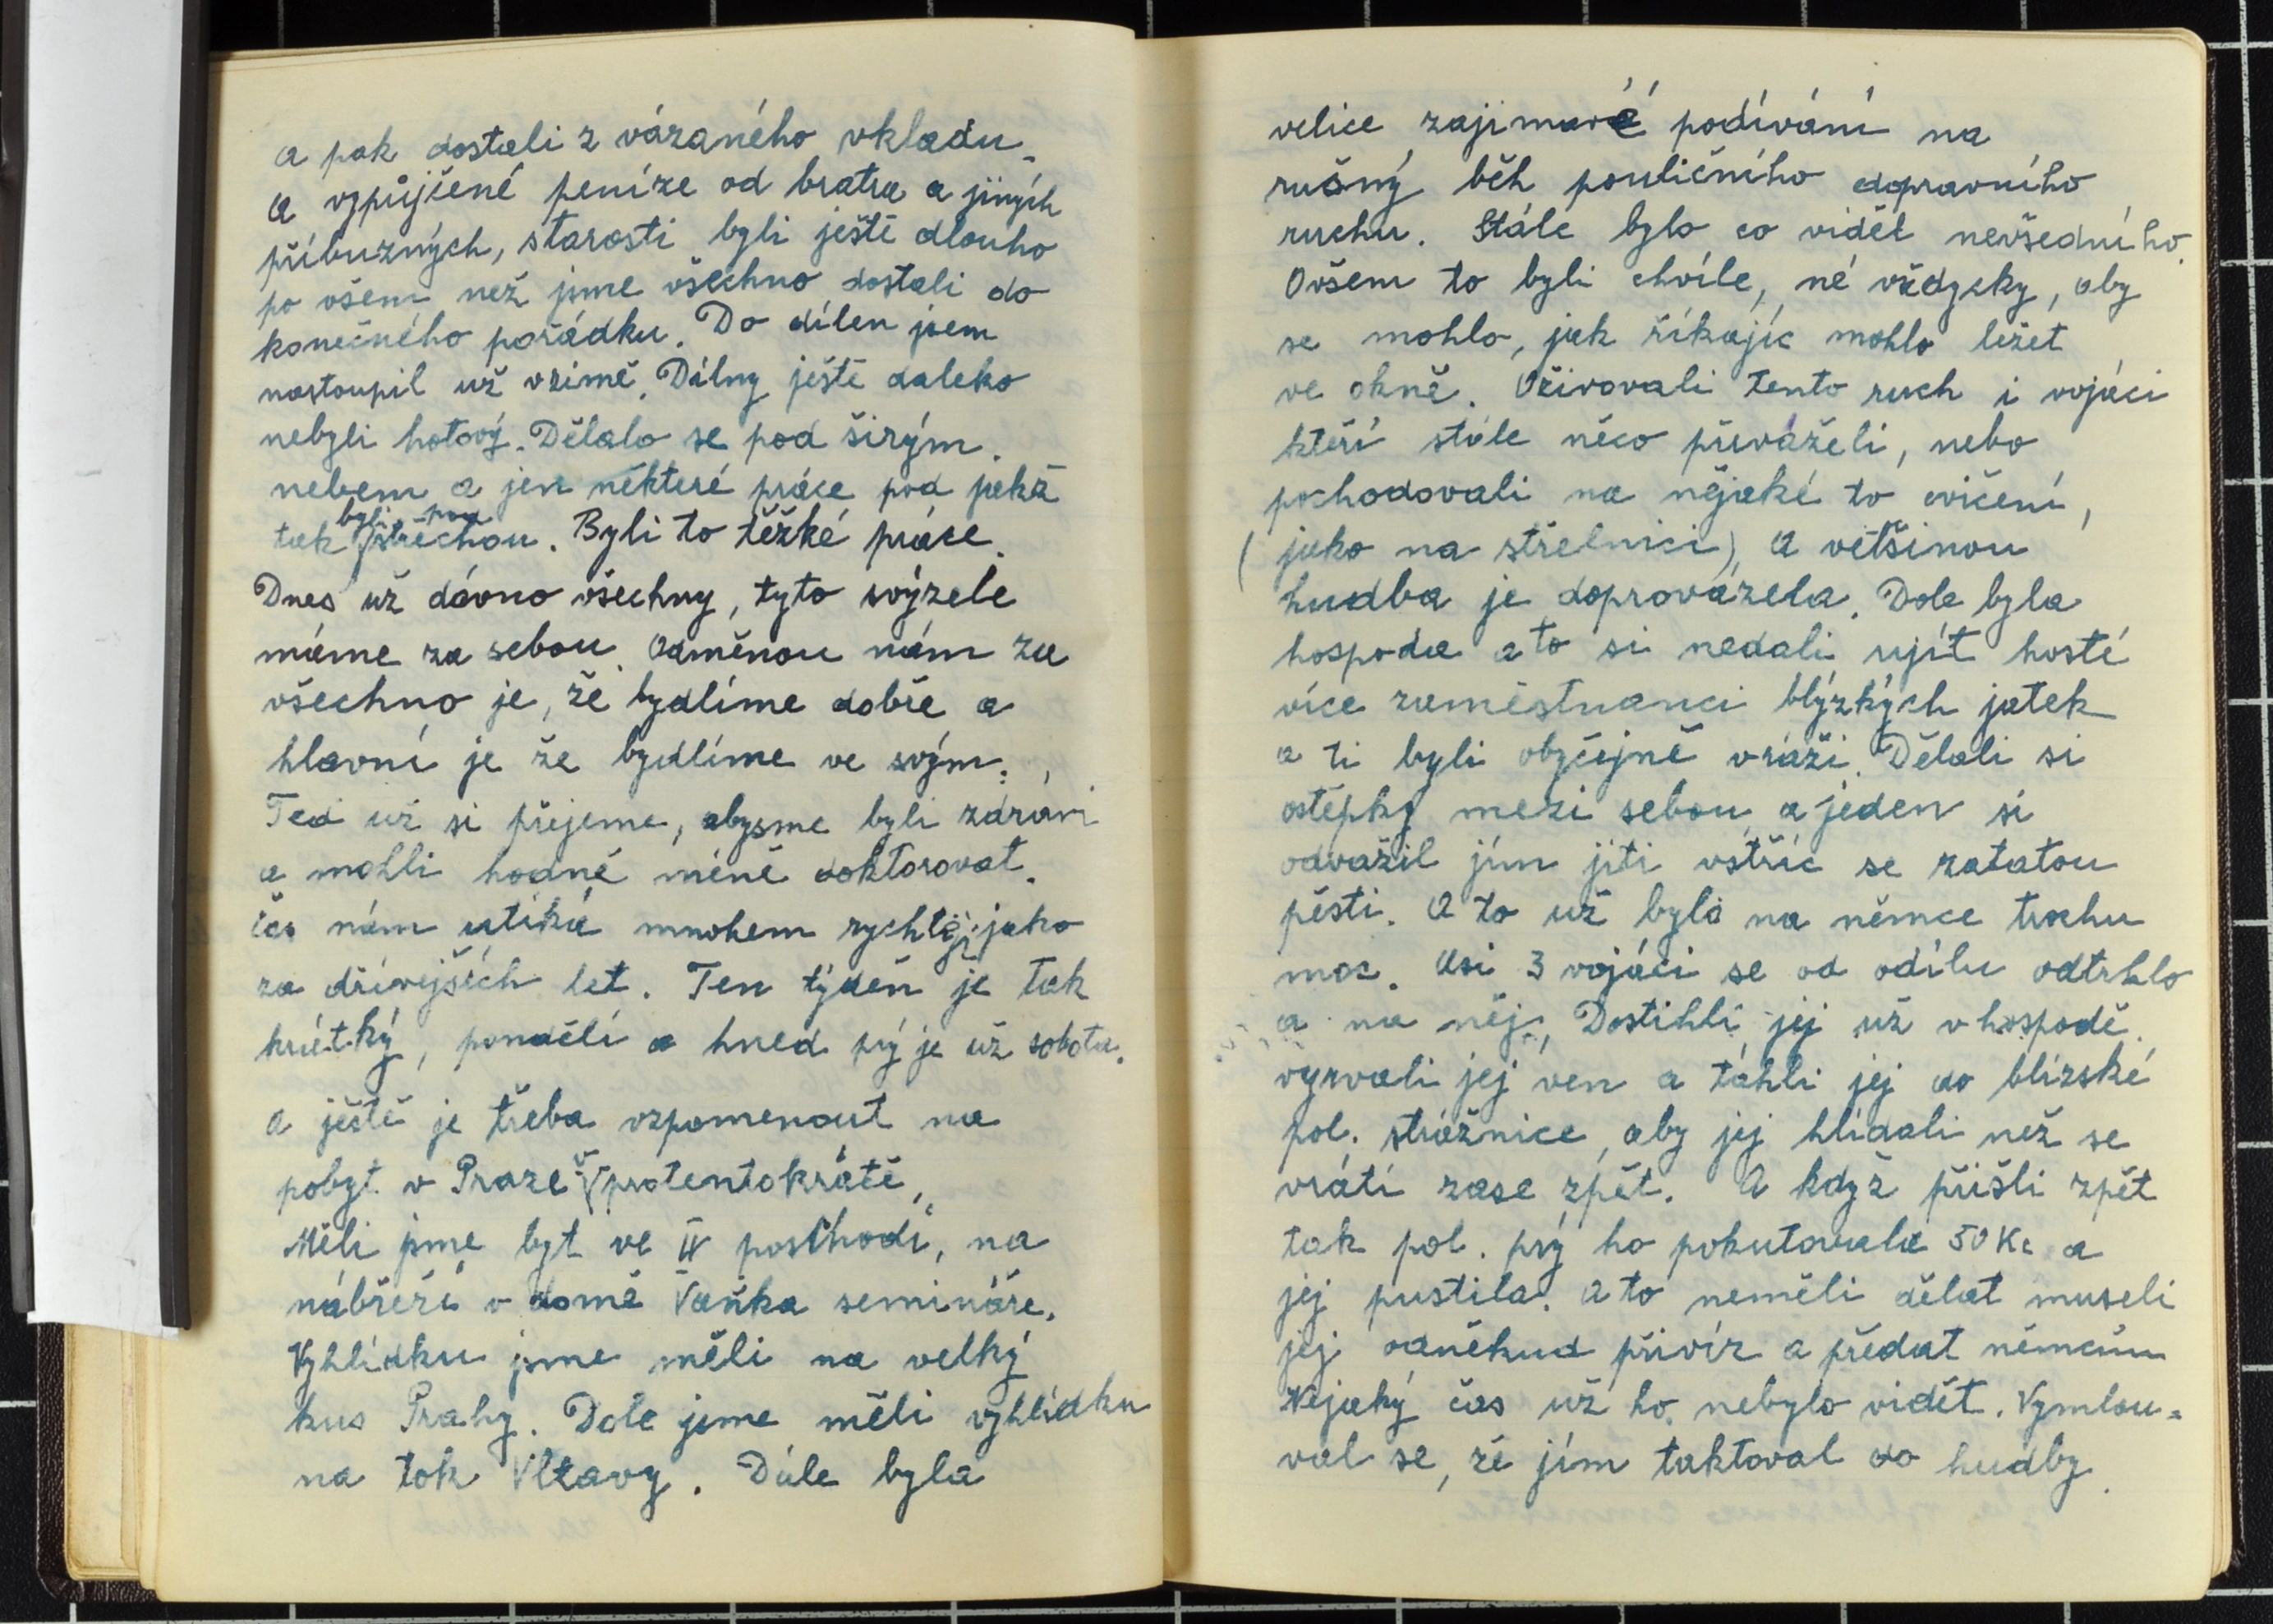 a pak dostali z vázaného vkladu.
a vypůjčené peníze od bratra a jiných
příbuzných, starosti byli ještě dlouho
po všem, než jsme všechno dostali do
konečného pořádku. Do dílen jsem
nastoupil už vzimě. Dílny ještě daleko
nebyli hotový. Dělalo se pod širým.
nebem a jen některé práce pod jakž
tak byli pod střechou. Byli to těžké práce.
Dnes už dávno všechny, tyto svýzele
máme za sebou. Odměnou nám za
všechno je, že bydlíme dobře a
hlavní je že bydlíme ve svým.
Teď už si přejeme, abysme byli zdrávi
a mohli hodně méně doktorovat.
čas nám utíká mnohem rychlěji jako
za dřívejších let. Ten týden je tak
krátký, pondělí a hned prý je už sobota.
a ještě je třeba vzpomenout na
pobyt v Praze v protentokrátě,
Měli jsme byt ve II poschodí, na
nábřeží v domě Vaňka semináře.
Vyhlídku jsme měli na velký
kus Prahy. Dole jsme měli vyhlídku
na tok Vltavy. Dále byla
velice zajimavé podívání na
rušný běh pouličního dopravního
ruchu. Stále bylo co vidět nevšedního.
Ovšem to byli chvíle, né vždycky, aby
se mohlo, jak říkajíc mohlo ležet
ve okně. Oživovali tento ruch i vojáci
kteří stále něco převáželi, nebo
pochodovali na nějaké to cvičení,
(jako na střelnici), a většinou
hudba je doprovázela. Dole byla
hospoda a to si nedali ujít hosté
více zaměstnanci blýzkých jatek
a ti byli obyčejně vráži. Dělali si
ostěpky mezi sebou a jeden si
odvážil jím jíti vstříc se zatatou
pěsti. A to už bylo na němce trochu
moc. Asi 3 vojáci se od odílu odtrhlo
a na něj, Dostihli jej už v hospodě.
vyrvali jej ven a táhli jej do blízské
pol. strážnice, aby jej hlídali než se
vrátí zase zpět. A když přišli zpět
tak pol. prý ho pokutovala 50 Kč a
jej pustila. a to neměli dělat museli
jej odněkud přivíz a předat němcům
Nějaký čas už ho nebylo vidět. Vymlou=
val se, že jím taktoval do hudby.